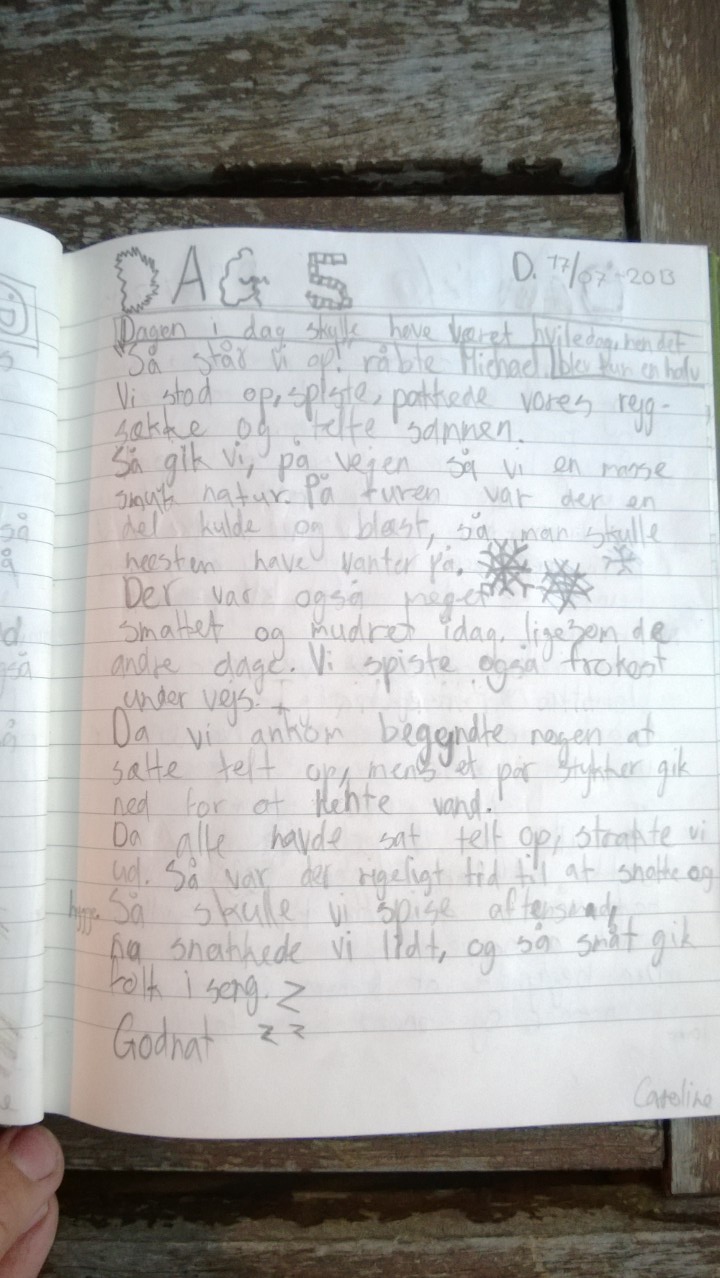 DAG 5 D. 17/07-2013
Dagen i dag skulle have været hviledag, men det
blev kun en halv
"Så står vi op!" råbte Michael.
Vi stod op, spiste, pakkede vores ryg-
sække og telte sammen.
Så gik vi, på vejen så vi en masse
smuk natur. På turen var der en
del kulde og blæst, så man skulle
næsten have vanter på.
Der var også meget
smattet og mudret idag, ligesom de
andre dage. Vi spiste også frokost
undervejs.
Da vi ankom begyndte nogen at
sætte telt op, mens et par stykker gik
ned for at hente vand.
Da alle havde sat telt op, strakte vi
ud. Så var der rigeligt tid til at snakke og
hygge. Så skulle vi spise aftensmad,
snakkede vi lidt, og så småt gik
folk i seng. Z
Godnat z z
Caroline
så
å
d
gså
å